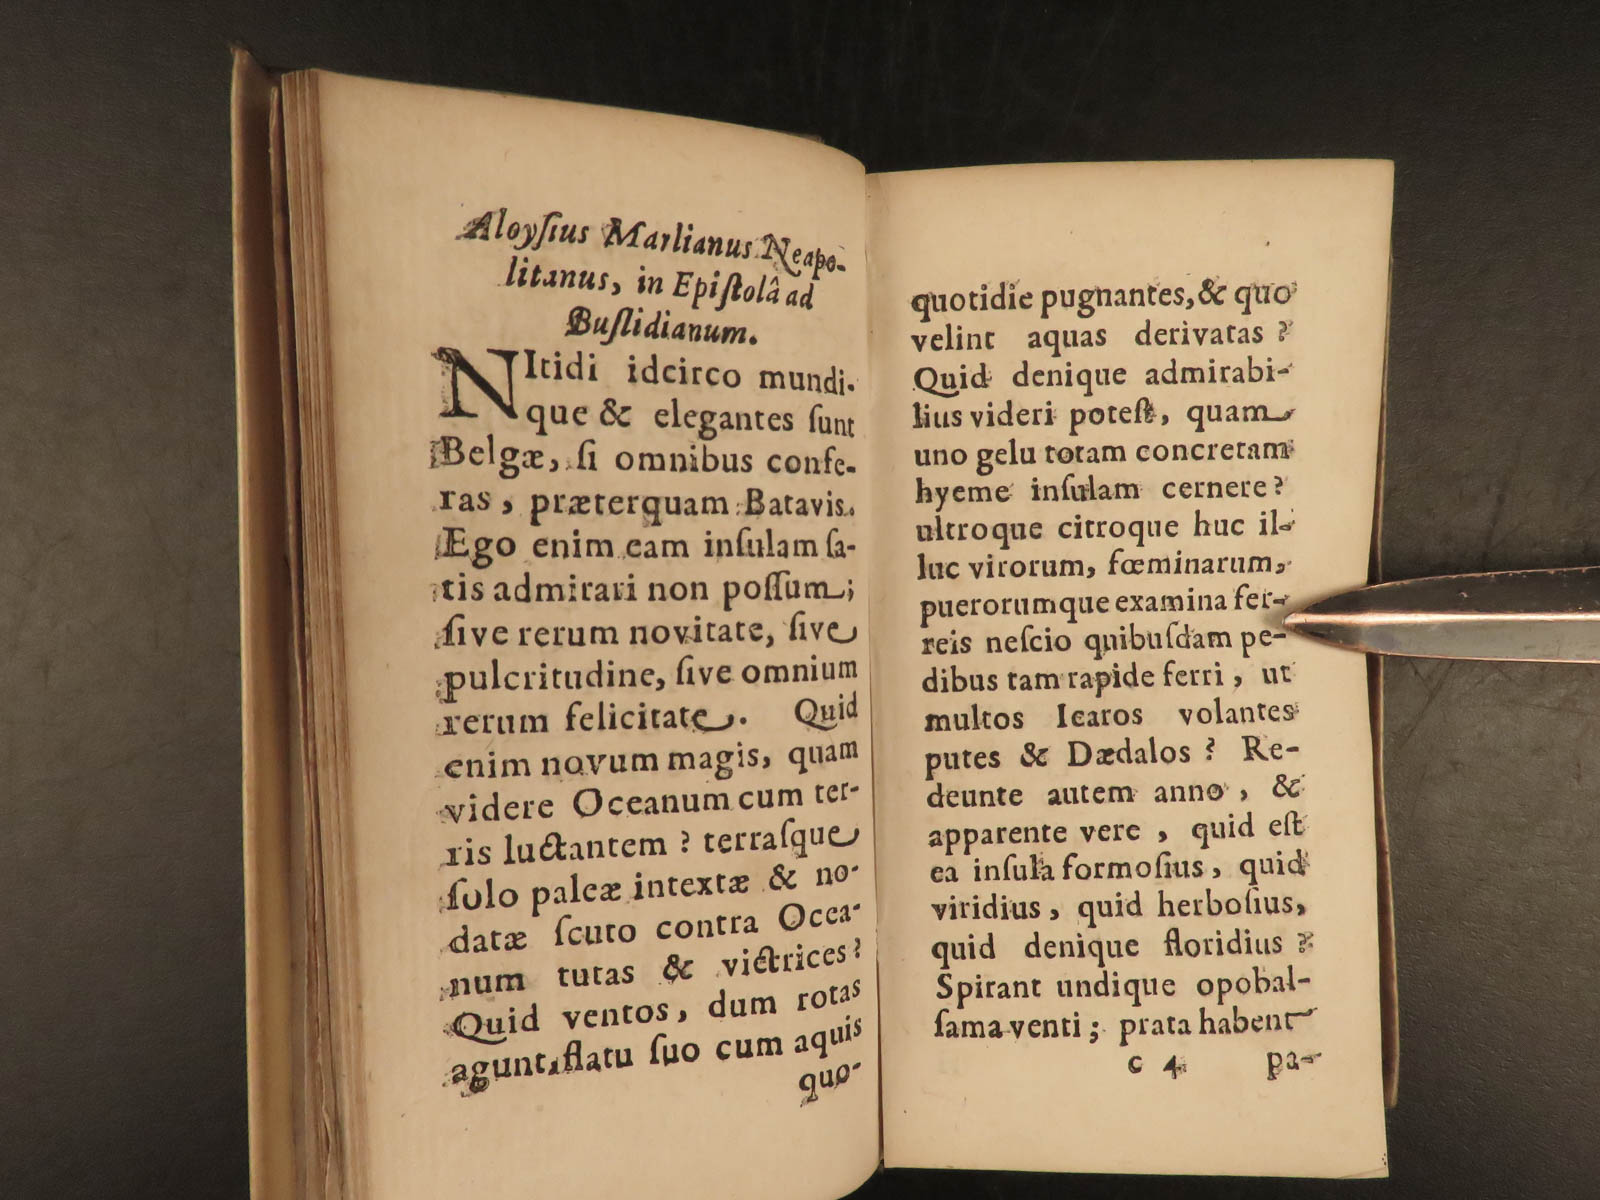 Aloyſius Marlianus Neapo-
litanus, in Epiſtolâ ad
Buſlidianum.
NItidi idcirco mundi-
que & elegantes ſunt
Belgæ, ſi omnibus confe-
ras, præterquam Batavis.
Ego enim eam inſulam ſa-
tis admirari non poſſum;
ſive rerum novitate, ſive
pulcritudine, ſive omnium
rerum felicitate. Quid
enim novum magis, quam
videre Oceanum cum ter-
ris luctantem? terraſque
ſolo paleæ intextæ & no-
datæ ſcuto contra Ocea-
num tutas & victrices?
Quid ventos, dum rotas
agunt, flatu ſuo cum aquis
quo-
quotidie pugnantes, & quo
velint aquas derivatas?
Quid denique admirabi-
lius videri poteſt, quam
uno gelu totam concretam
hyeme inſulam cernere?
ultroque citroque huc il-
luc virorum, fœminarum,
puerorumque examina fer-
reis neſcio quibuſdam pe-
dibus tam rapide ferri, ut
multos Icaros volantes
putes & Dædalos? Re-
deunte autem anno, &
apparente vere, quid eſt
ea inſula formoſius, quid
viridius, quid herboſius,
quid denique floridius?
Spirant undique opobal-
ſama venti; prata habent
c 4 pa-